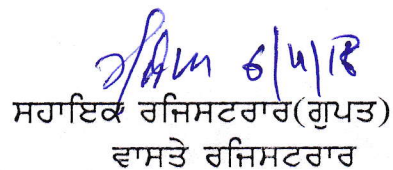 6/4/18
ਸਹਾਇਕ ਰਜਿਸਟਰਾਰ(ਗੁਪਤ)
ਵਾਸਤੇ ਰਜਿਸਟਰਾਰ